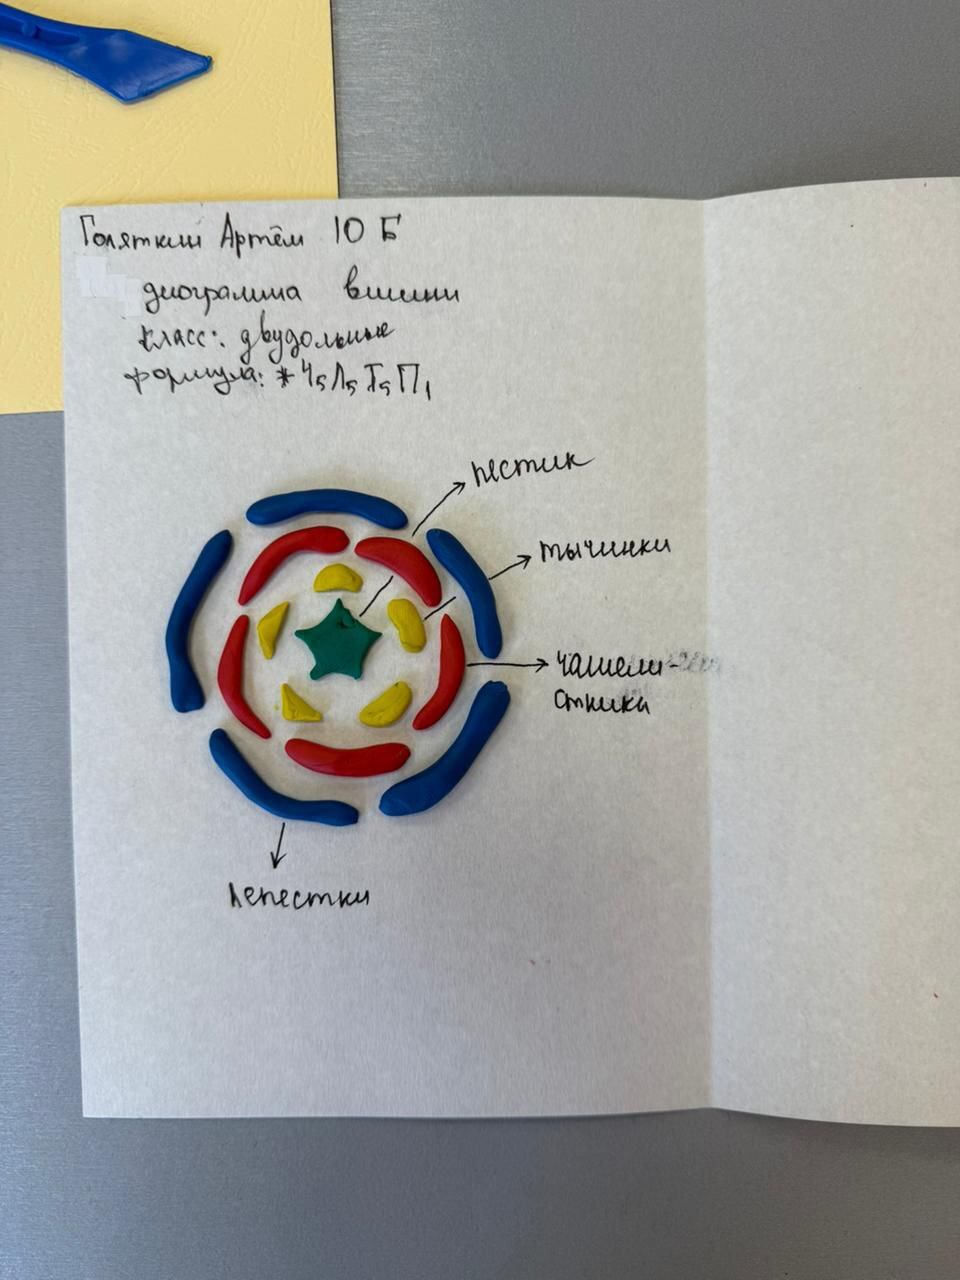 Голяткин Артём 10 Б
диограмма вишни
класс: двудольные
формула: *Ч5Л5Т5П1
пестик
тычинки
чашели-
стики
лепестки